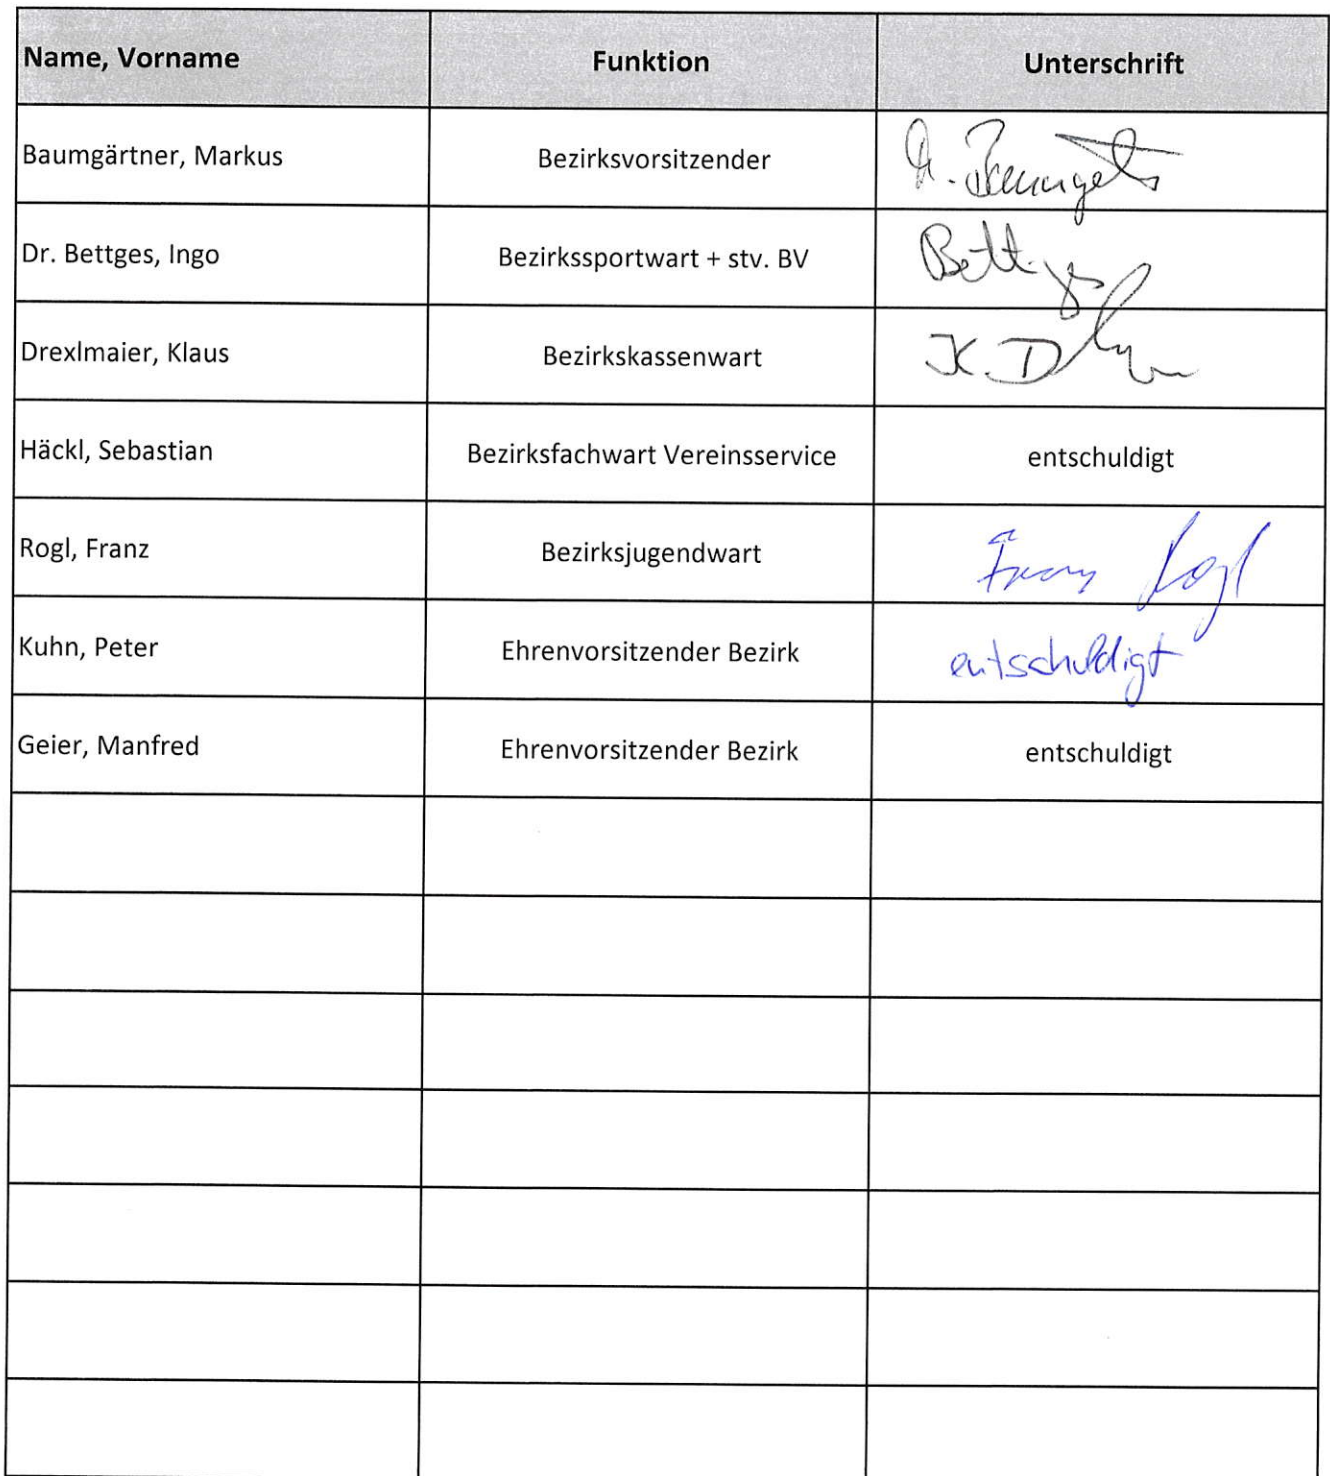 Name, Vorname Funktion Unterschrift
Baumgärtner, Markus Bezirksvorsitzender
Dr. Bettges, Ingo Bezirkssportwart + stv. BV
Drexlmaier, Klaus Bezirkskassenwart K. D
Häckl, Sebastian Bezirksfachwart Vereinsservice entschuldigt
Rogl, Franz Bezirksjugendwart Franz Rogl
Kuhn, Peter Ehrenvorsitzender Bezirk entschuldigt
Geier, Manfred Ehrenvorsitzender Bezirk entschuldigt